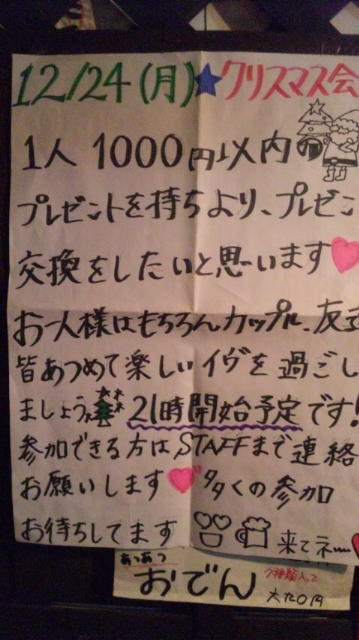 12/24(月)★クリスマス会
1人 1000円以内の
プレゼントを持ちより、プレゼン
交換をしたいと思います♥
お一人様はもちろんカップル、友
皆あつめて楽しいイヴを過ごし
ましょう 21時開始予定です!
参加できる方はSTAFFまで連絡
お願いします♥ 多くの参加
お待ちしてます 来てネ
あつあつ
おでん